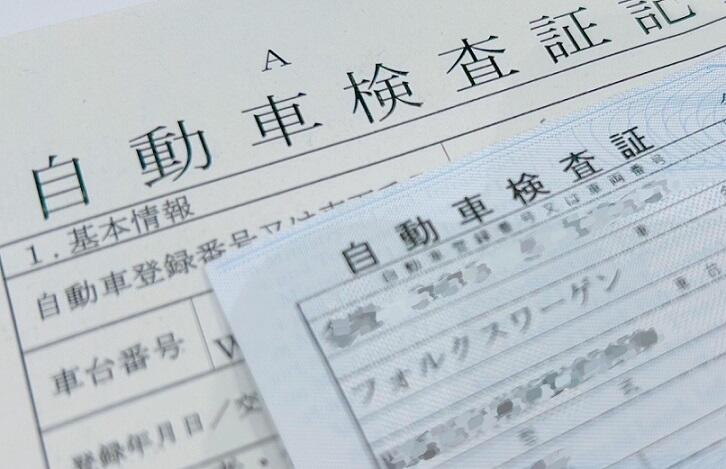 A
自動車検査証記
1.基本情報
自動車登録番号又は車両
車台番号 W
登録年月日／交
自動車検査証
自動車登録番号又は車両番号
車
フォルクスワーゲン
車台